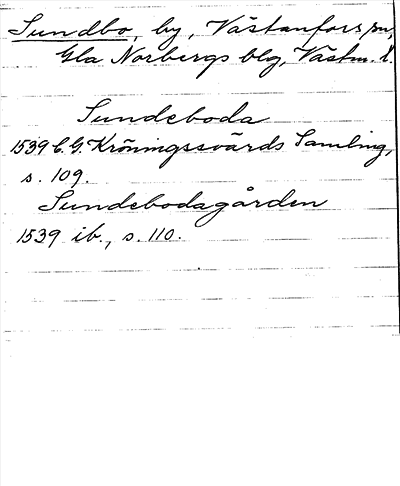 Sundbo, by, Västanfors sn,
Gla Norbergs blg, Västm. l.
Sundeboda
1539 C. G. Kröningssvärds Samling,
s. 109.
Sundebodagården
1539 ib., s. 110.